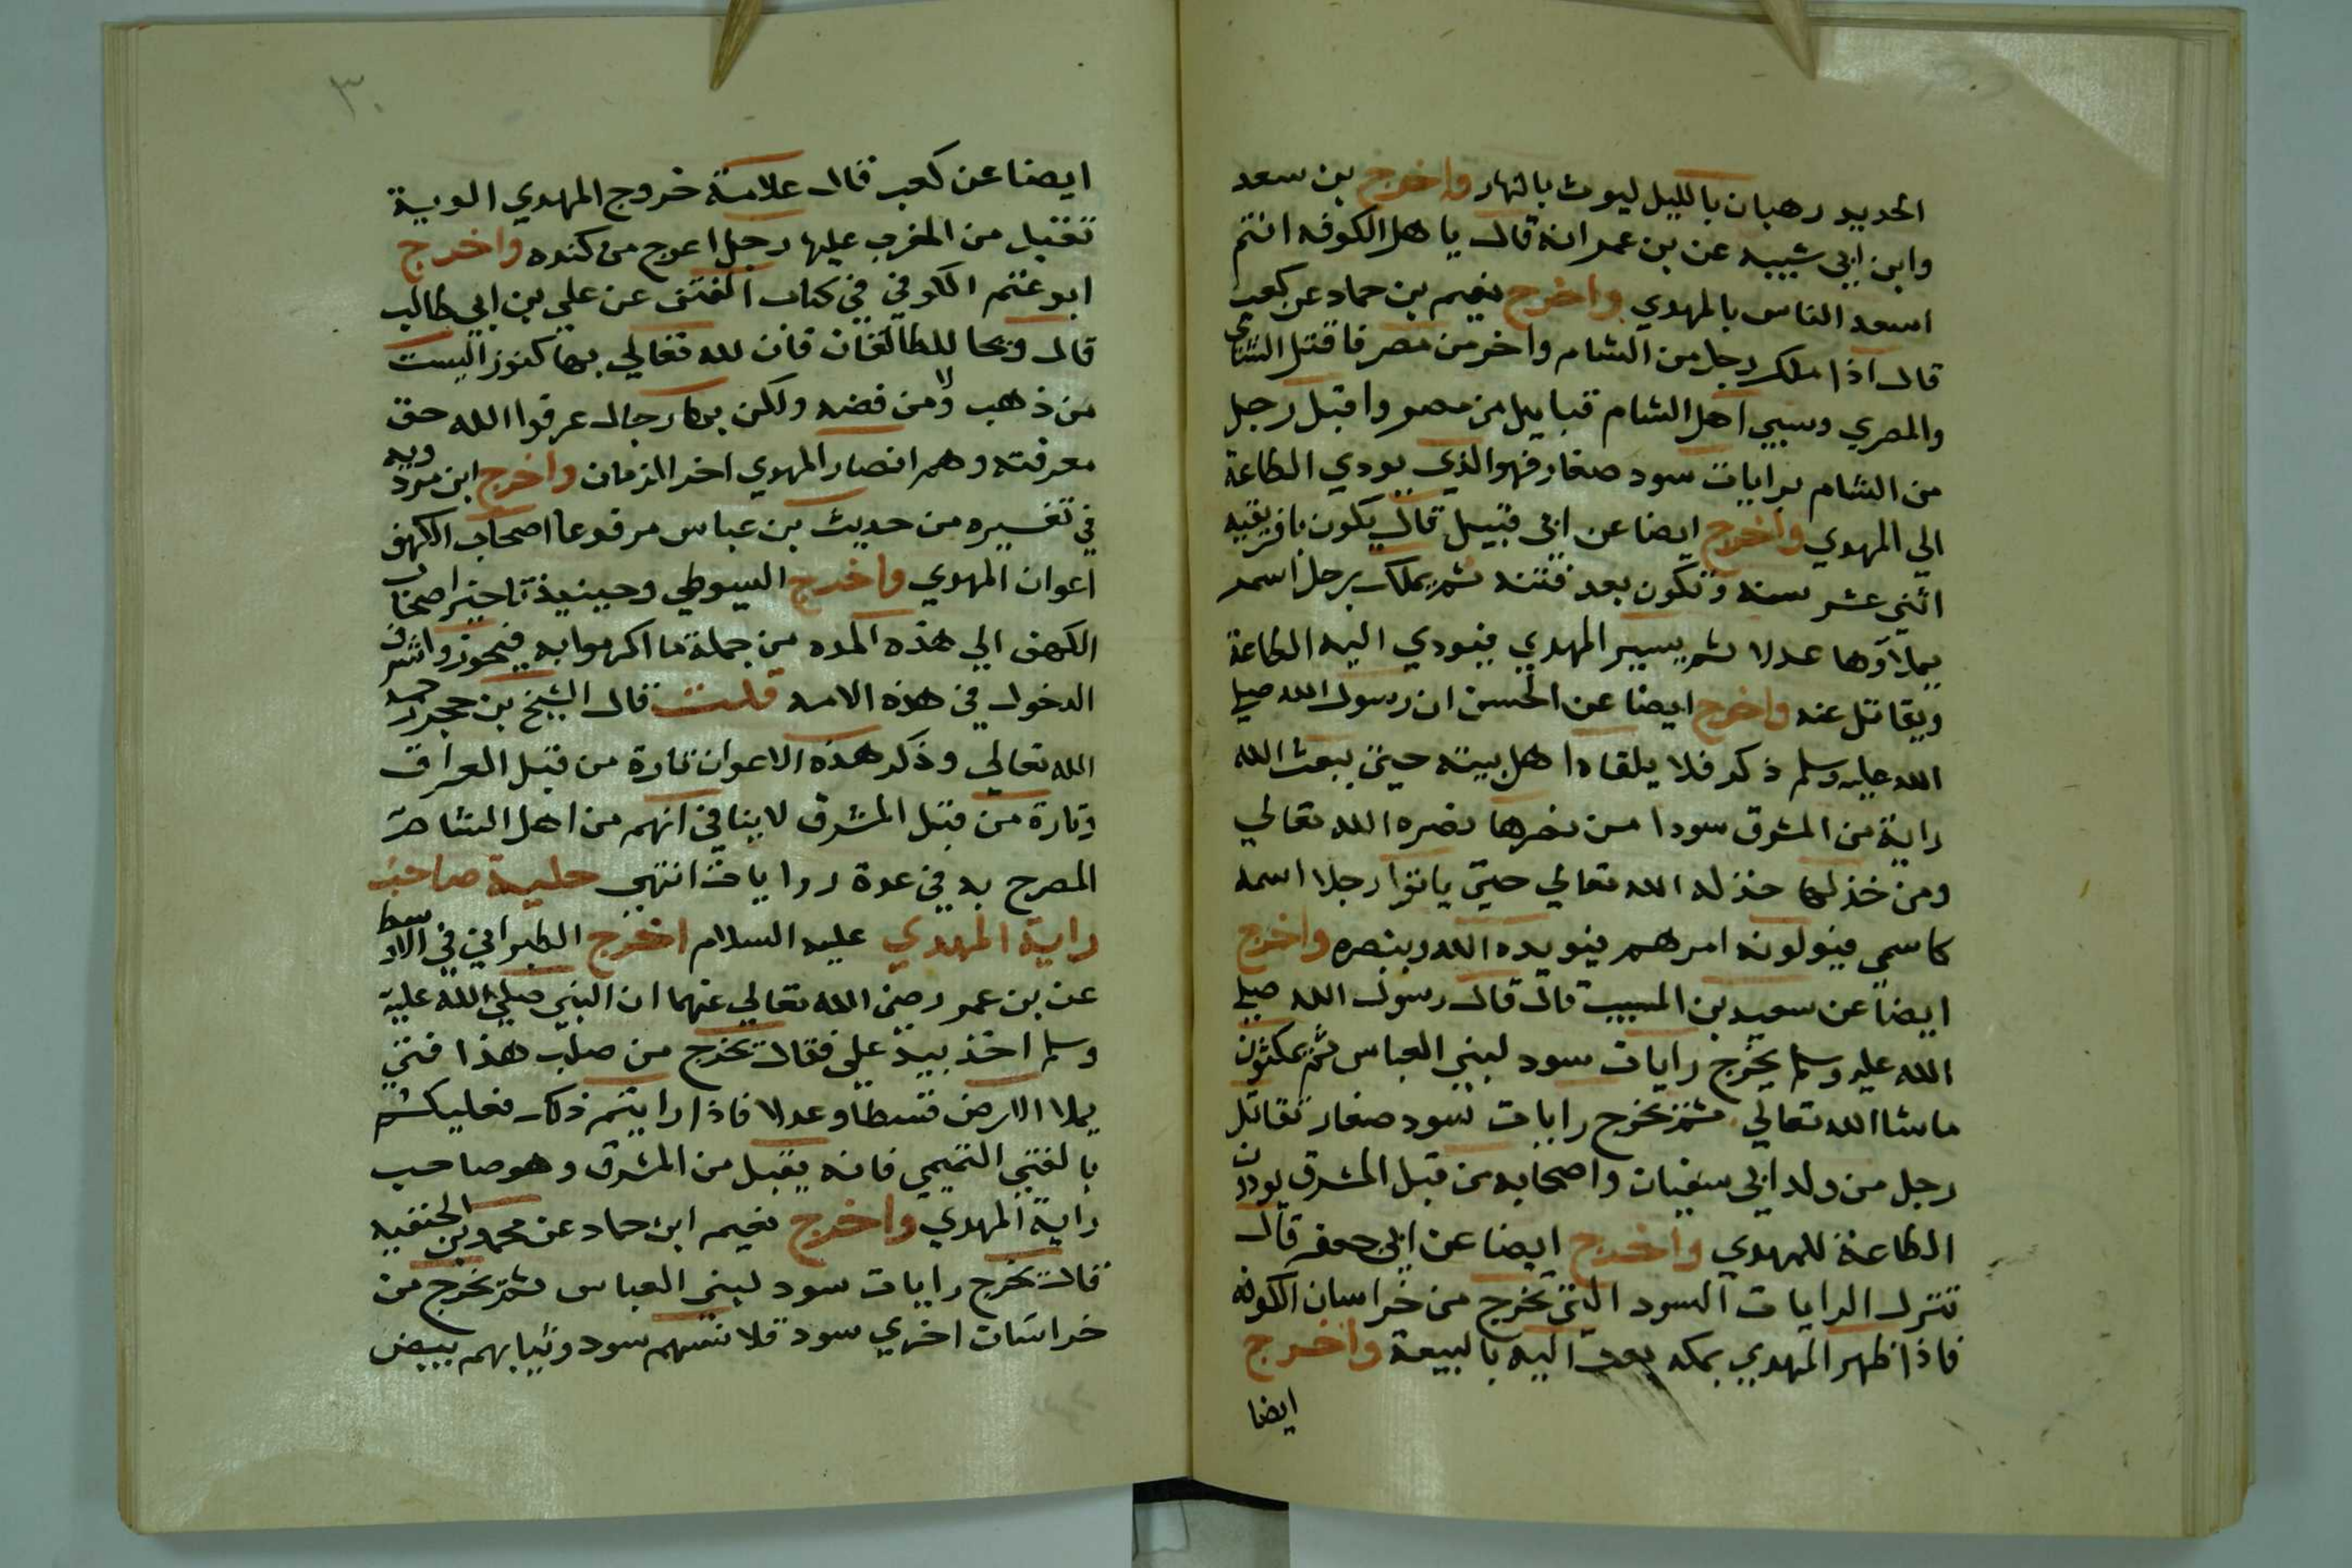 الحديد رهبان بالليل ليوث بالنهار واخرج بن سعد
وابن ابي شيبه عن بن عمر انه قال يا هل الكوفه انتم
اسعد الناس بالمهدي واخرج نعيم بن حماد عن كعب
قال اذا ملك رجل من الشام واخر من مصر فاقتتل الشامي
والمصري وسبي اهل الشام قبايل من مصر واقبل رجل
من الشام برايات سود صغار فهو الذي يودي الطاعة
الي المهدي واخرج ايضا عن ابي قبيل قال يكون بافريقيه
اثني عشر سنه وتكون بعد فتنه ثم يملك رجل اسمر
يملاؤها عدلا ثم يسير المهدي فيودي اليه الطاعة
ويقاتل عنه واخرج ايضا عن الحسن ان رسول الله صلي
الله عليه وسلم ذكر فلا يلقاه اهل بيته حتي يبعث الله
راية من المشرق سودا من نصرها نصره الله تعالي
ومن خذلها خذله الله تعالي حتي ياتوا رجلا اسمه
كاسمي فيولونه امرهم فيويده الله وينصره واخرج
ايضاً عن سعيد بن المسيب قال قال رسول الله صلي
الله عليه وسلم يخرج رايات سود لبني العباس ثم يمكثون
ماشا الله تعالي ثم تخرج رايات سود صغار تقاتل
رجل من ولد ابي سفيان واصحابه من قبل المشرق يودون
الطاعة للمهدي واخرج ايضا عن ابي جعفر قال
تنزل الرايات السود التي تخرج من خراسان الكوفه
فاذا ظهر المهدي بمكه بعث اليه بالبيعة واخرج
ايضا
٣٠
ايضا عن كعب قال علامة خروج المهدي الوية
تقبل من المغرب عليها رجل اعرج من كنده واخرج
ابو غنم الكوفي في كتاب الفتن عن علي بن ابي طالب
قال ويحا للطالقان فان لله تعالي بها كنوز اليست
من ذهب ولا من فضه ولكن بها رجال عرفوا الله حق
معرفته وهم انصار المهدي اخر الزمان واخرج ابن مردويه
في تفسيره من حديث بن عباس مرفوعا اصحاب الكهف
اعوان المهدي واخرج السيوطي وحينيذ تاخير اصحاب
الكهف الي هذه المده من جملة ما اكرموا به فيحوزوا شرف
الدخول في هذه الامه قلت قال الشيخ بن حجر رحمه
الله تعالي وذكر هذه الاعوان تارة من قبل العراق
وتارة من قبل المشرق لا ينافي انهم من اهل الشام
المصرح به في عدة روايات انتهي حلية صاحب
راية المهدي عليه السلام اخرج الطبراني في الاوسط
عن بن عمر رضي الله تعالي عنهما ان النبي صلي الله عليه
وسلم اخذ بيد علي فقال يخرج من صلب هذا فتي
يملا الارض قسطا وعدلا فاذا رايتم ذلك فعليكم
بالفتي التميمي فانه يقبل من المشرق وهو صاحب
راية المهدي واخرج نعيم ابن حماد عن محمد بن الحنفيه
قال تخرج رايات سود لبني العباس ثم تخرج من
خراسان اخري سود قلانسهم سود وثيابهم بيض